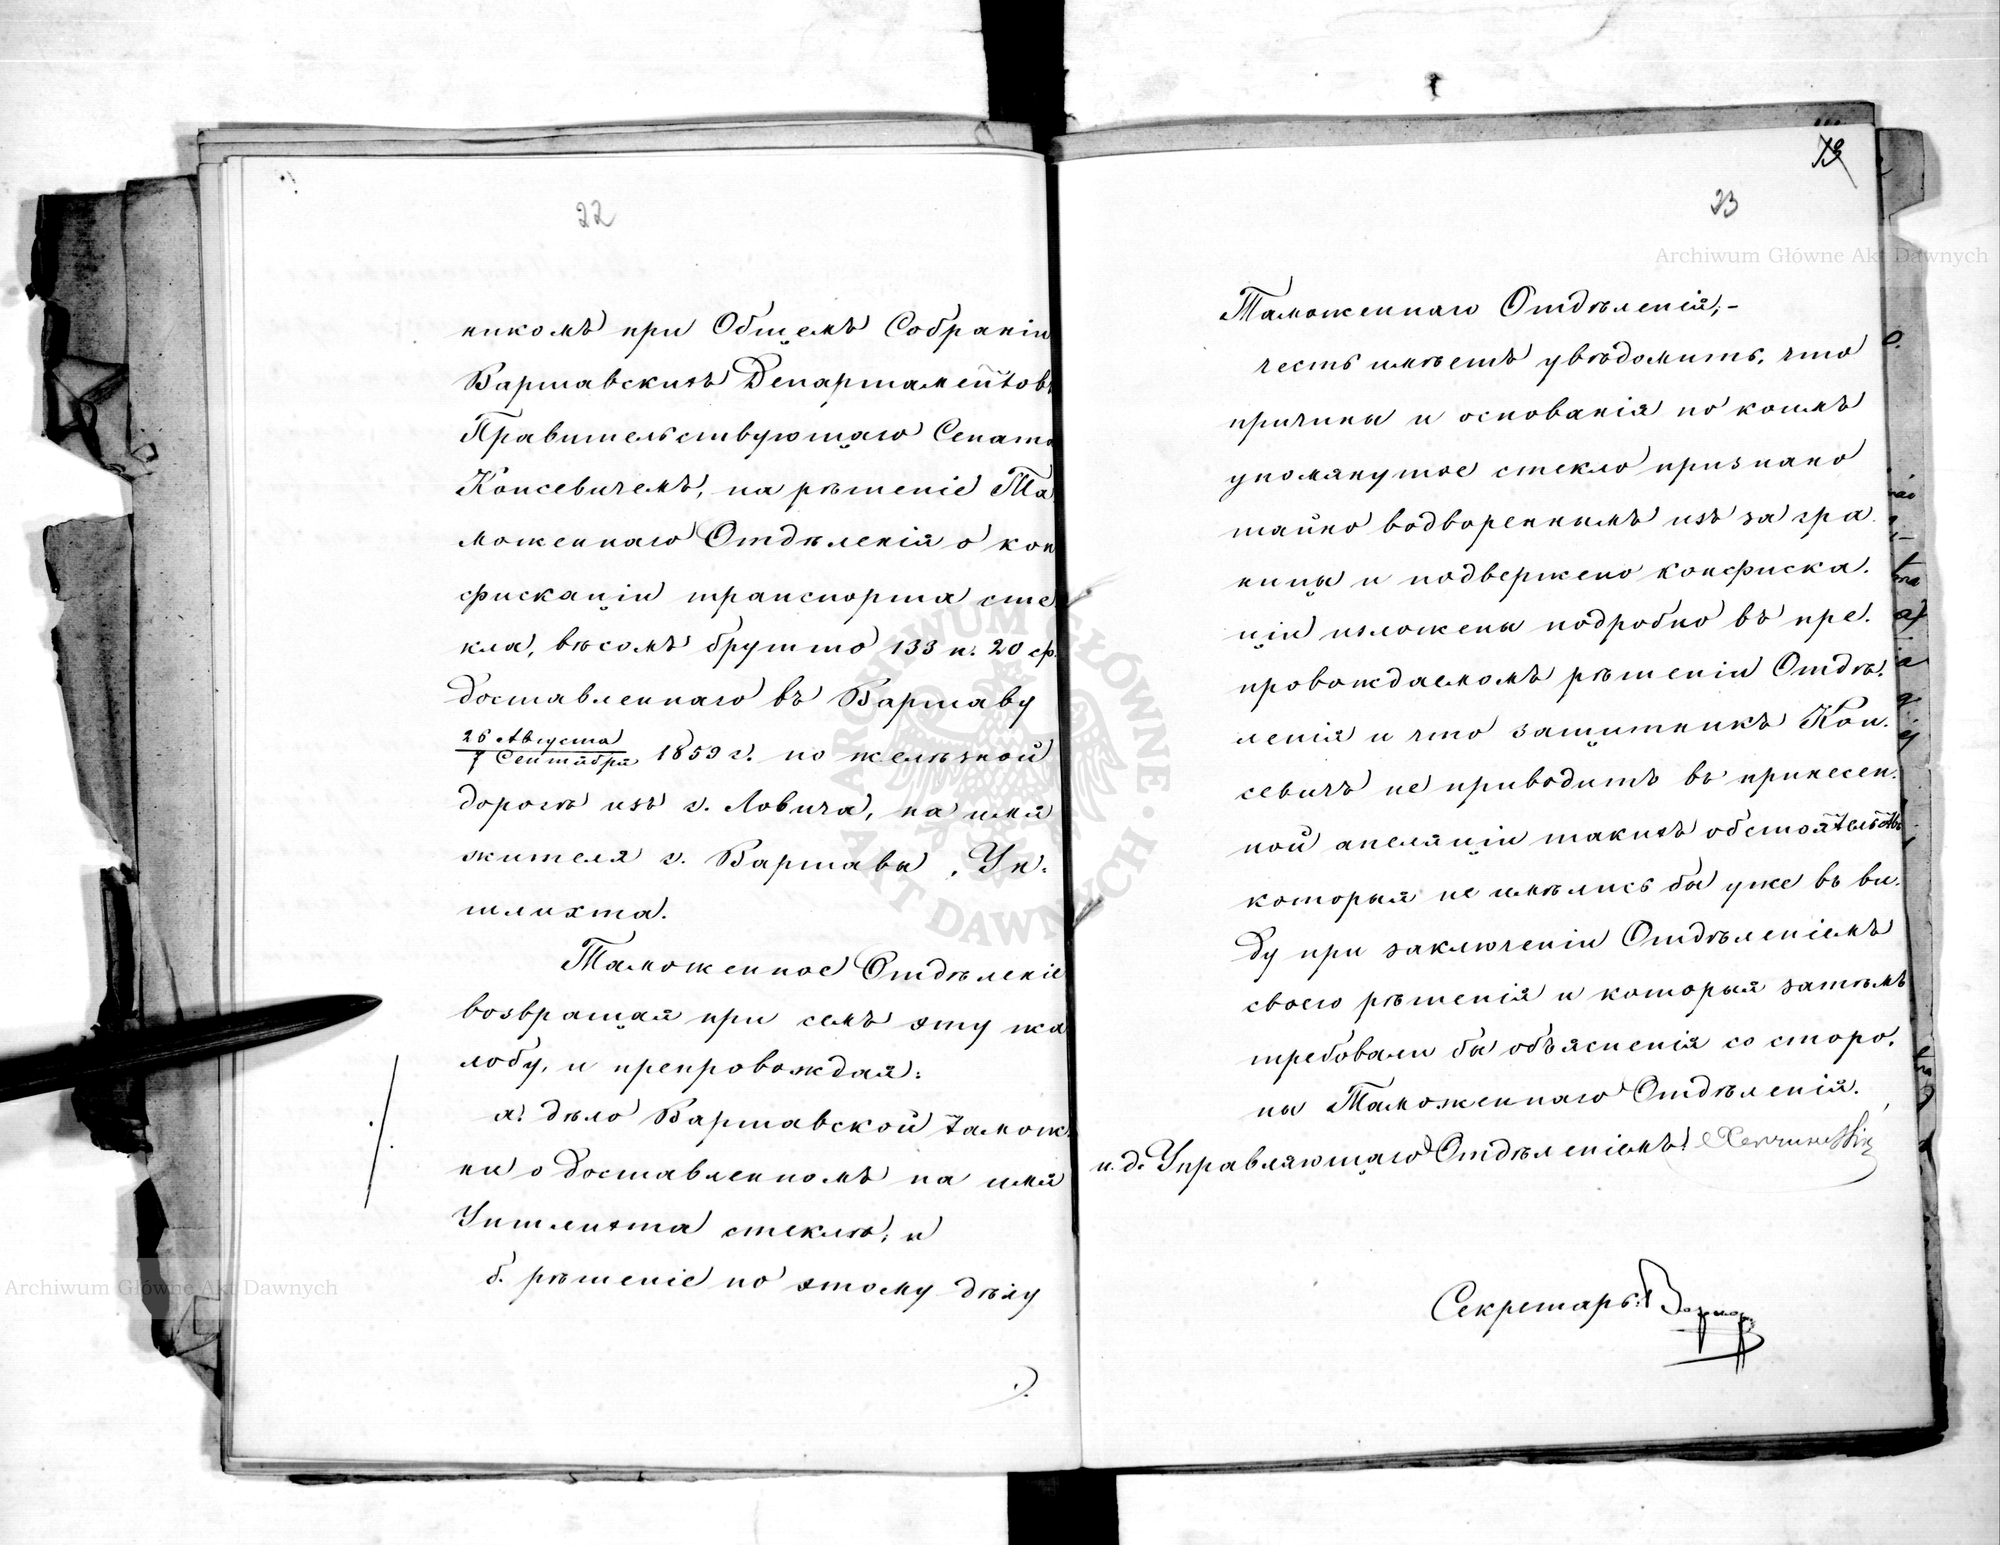 22
никомъ при Общемъ Собраніи
Варшавскихъ Департаментовъ
Правительствующаго Сената
Консевичемъ, на рѣшеніе Та
моженнаго Отдѣленія о кон
фискаціи транспорта сте
кла, вѣсомъ брутто 133 п. 20 ф.
доставленнаго въ Варшаву
26 Августа
7 Сентября 1859 г. по желѣзной
дорогѣ изъ г. Ловича, на имя
жителя г. Варшавы, Ун.
шлихта.
Таможенное Отдѣленіе
возвращая при семъ эту жа
лобу, и препровождая:
а. дѣло Варшавской тамож
ни о доставленномъ на имя
Уншлихта стеклѣ; и
б. рѣшеніе по этому дѣлу
23
Таможеннаго Отдѣленія,-
честь имѣетъ увѣдомить, что
причины и основанія по коимъ
упомянутое стекло признано
тайно водвореннымъ изъ за гра
ницы и подвержено конфиска.
ціи изложены подробно въ пре.
провождаемомъ рѣшеніи Отдѣ.
ленія и что защитникъ Кон.
севичъ не приводитъ въ принесен.
ной апеляціи такихъ обстоятельствъ
которыя не имѣлись бы уже въ ви.
ду при заключеніи Отдѣленіемъ
своего рѣшенія и которыя затѣмъ
требовали бы объясненія со сторо.
ны Таможеннаго Отдѣленія.
и. д. Управляющаго Отдѣленіемъ:
Секретарь:
Archiwum Główne Akt Dawnych
Archiwum Główne Akt Dawnych
ARCHIWUM GŁÓWNE AKT DAWNYCH